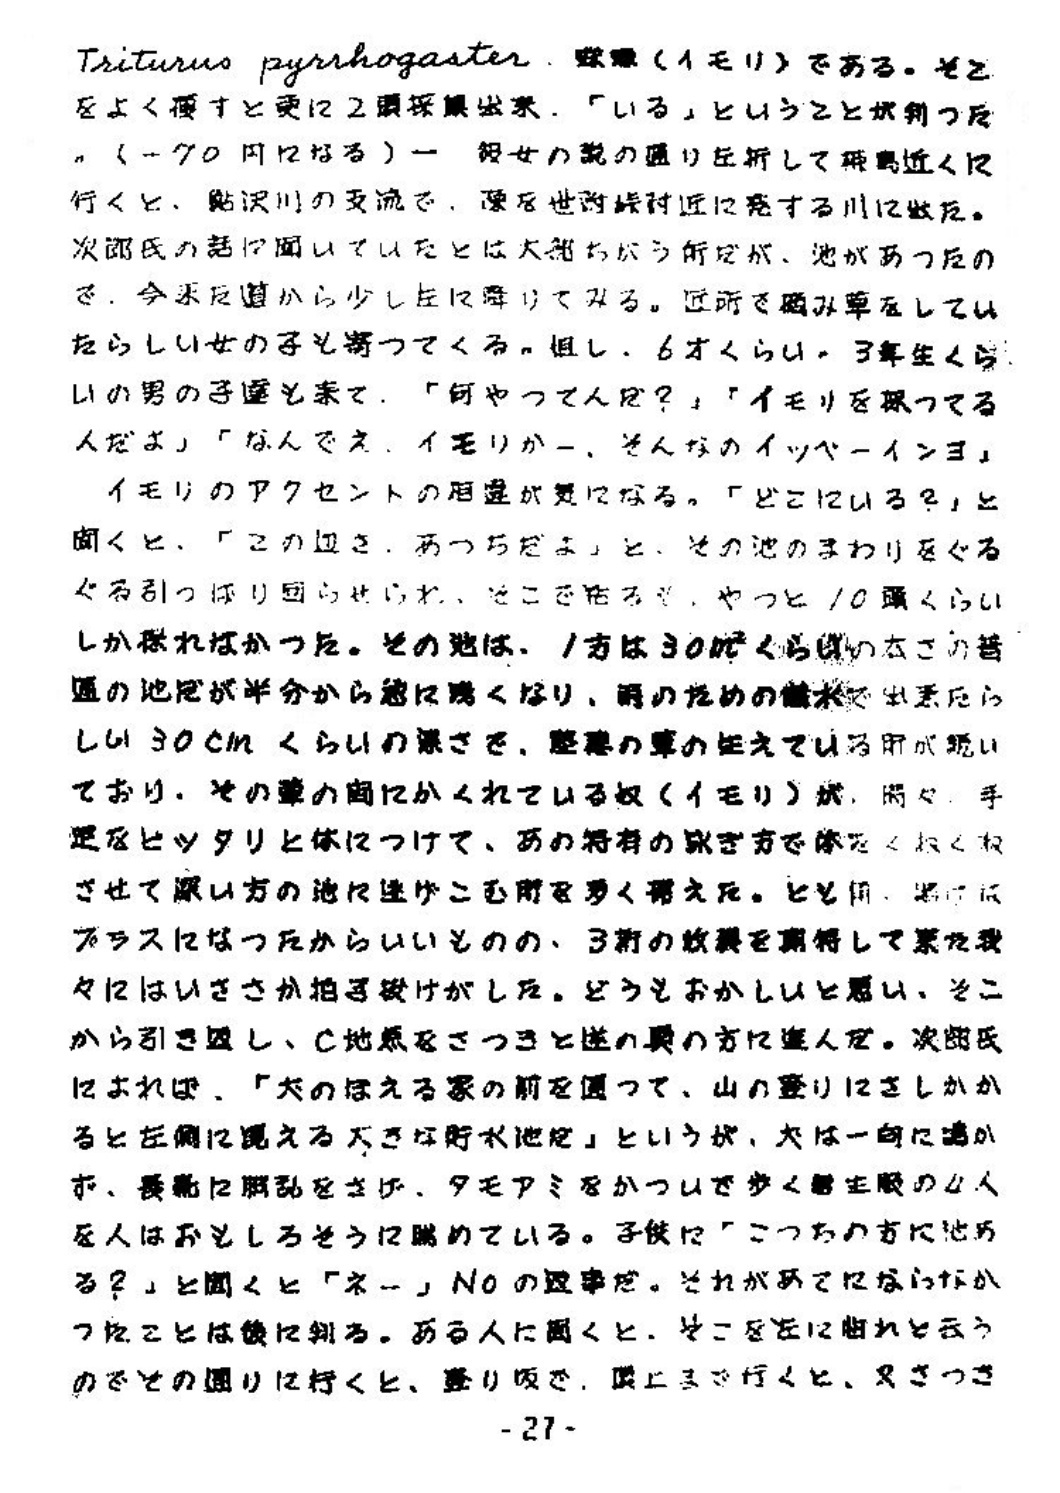 Triturus pyrrhogaster. 蠑螈(イモリ)である。そこ
をよく捜すと更に2頭採集出来.「いる」ということが判つた
。(-70円になる)ー 彼女の説の通り左折して 近くに
行くと、鮎沢川の支流で、源を世附峠附近に発する川に出た。
次郎氏の話に聞いていたとは大部ちがう所だが、池があつたの
で.今来た道から少し左に降りてみる。近所で摘み草をしてい
たらしい女の子も寄つてくる。但し.6才くらい。3年生くら
いの男の子達も来て.「何やつてんだ?」「イモリを採つてる
人だよ」「なんでえ.イモリかー、そんなのイッペーインヨ」
イモリのアクセントの相違が気になる。「どこにいる?」と
聞くと、「この辺さ.あつちだよ」と、その池のまわりをぐる
ぐる引つぱり回らせられ、そこで粘るも.やつと10頭くらい
しか採れなかつた。その池は、1方は30m²くらいの大きさの普
通の池だが半分から急に浅くなり、雨のための増水で出来たら
しい30cmくらいの深さで、 の草の生えている所が続い
ており.その草の間にかくれている奴(イモリ)が.時々.手
足をピッタリと体につけて、あの特有の泳ぎ方で体をくねくね
させて深い方の池に逃げこむ所を多く捕えた。とも角、 は
プラスになつたからいいものの、3桁の収穫を期待して来た我
々にはいささか拍子抜けがした。どうもおかしいと思い、そこ
から引き返し、C地点をさつきと逆の 方に進んだ。次郎氏
によれば、「犬のほえる家の前を通つて、山の登りにさしかか
ると左側に見える大きな貯水池だ」というが、犬は一向に鳴か
ず、長靴に胴乱をさげ、タモアミをかついで歩く学生服の4人
を人はおもしろそうに眺めている。子供に「こつちの方に池あ
る?」と聞くと「ネー」NOの返事だ。それがあてにならなか
つたことは後に判る。ある人に聞くと.そこを左に曲れと云う
のでその通りに行くと、登り坂で.頂上まで行くと、又さつき
-27-